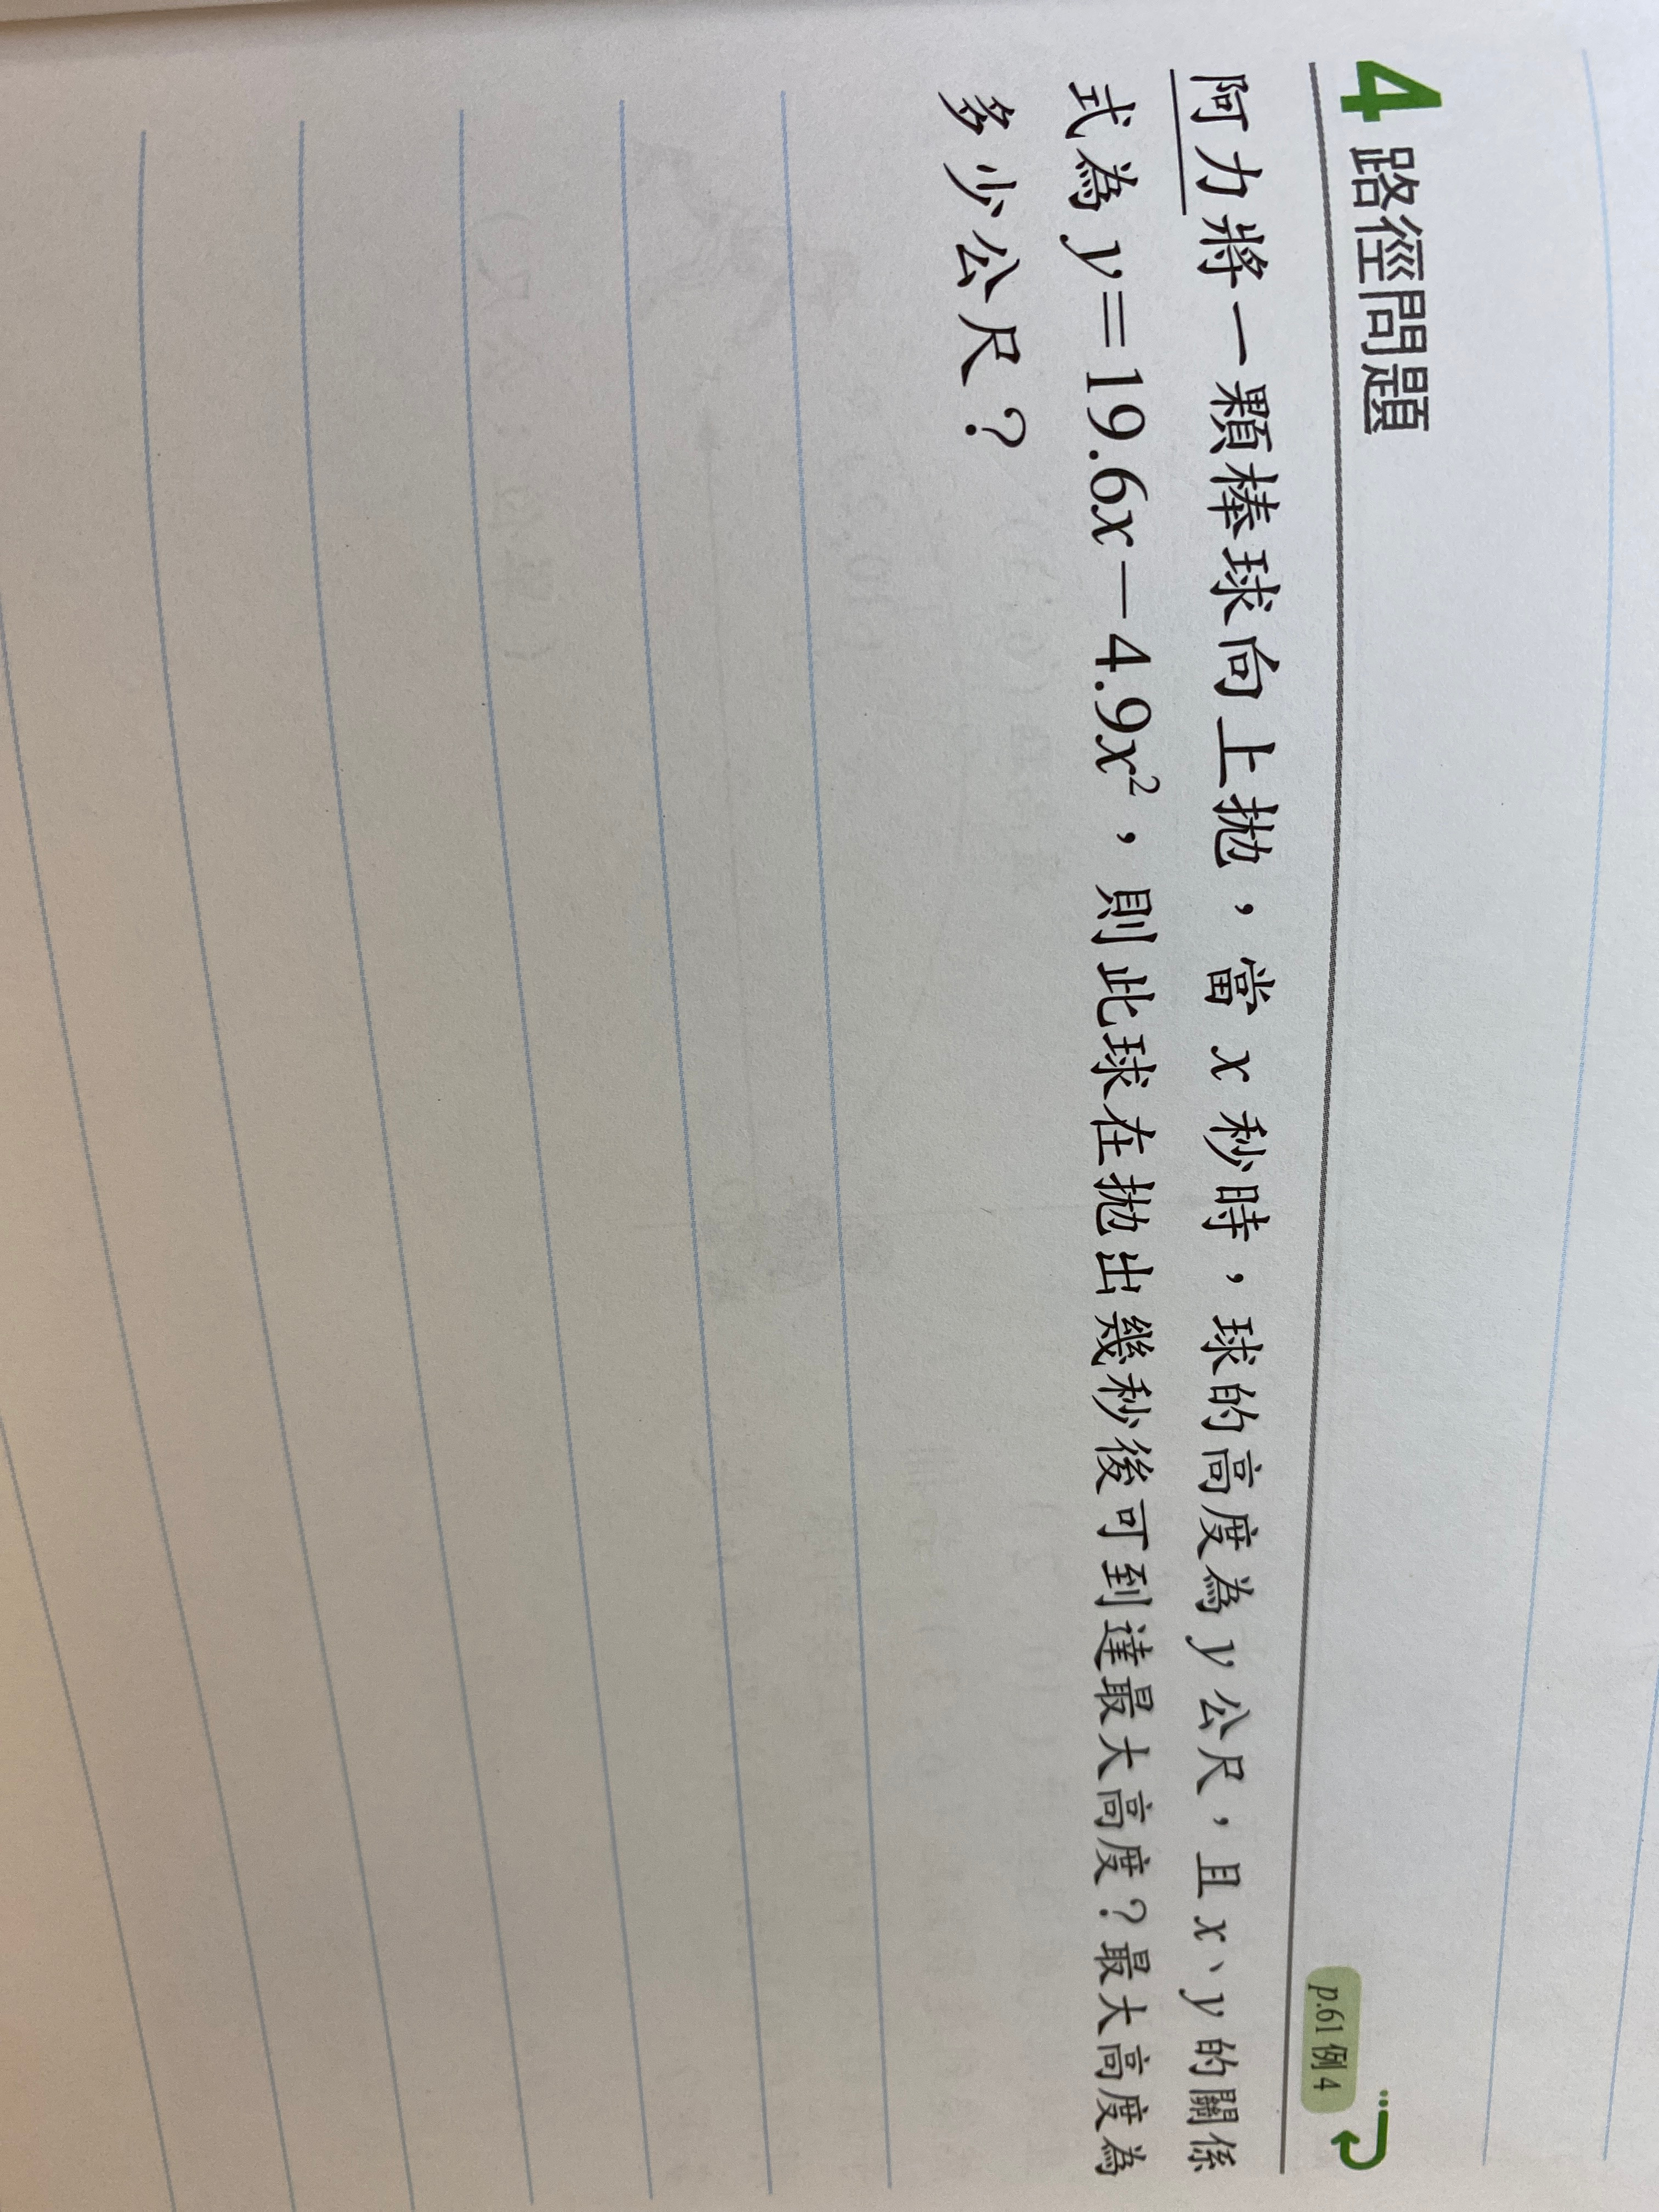 4 路徑問題
p.61 例 4
阿力將一顆棒球向上拋，當 x 秒時，球的高度為 y 公尺，且 x、y 的關係
式為 y＝19.6x－4.9x²，則此球在拋出幾秒後可到達最大高度？最大高度為
多少公尺？